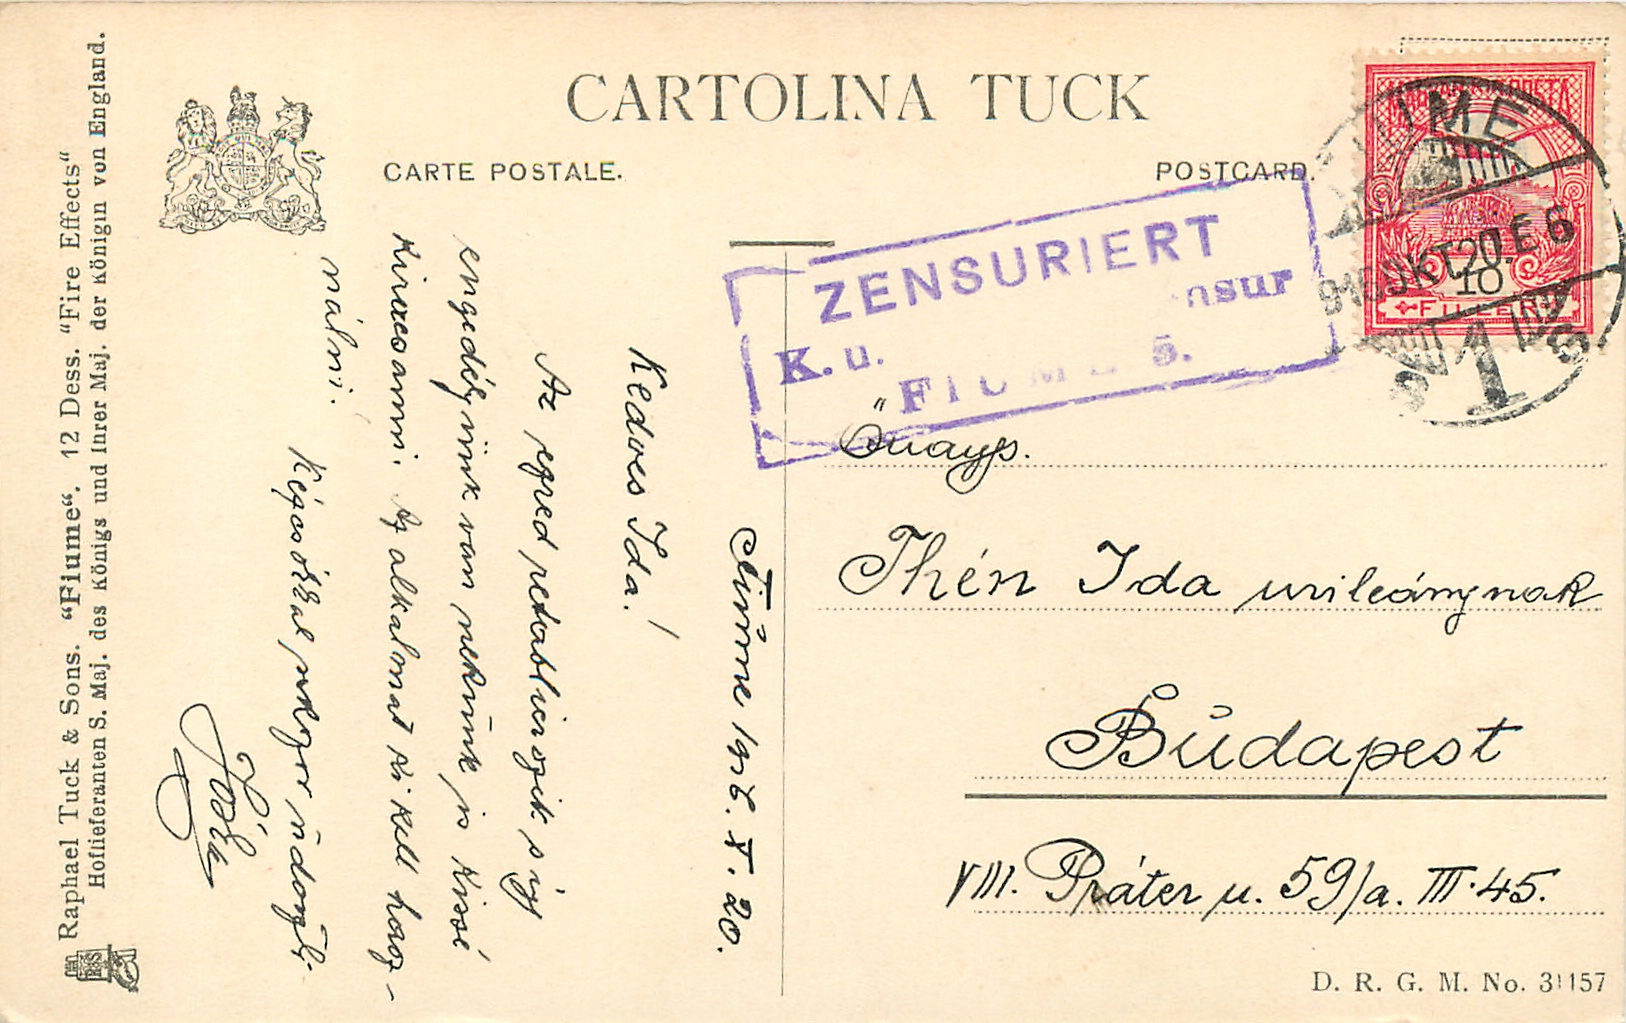 CARTOLINA TUCK
CARTE POSTALE.
POSTCARD.
Raphael Tuck & Sons. "Fiume". 12 Dess. "Fire Effects"
Hoflieferanten S. Maj. des Königs und Ihrer Maj. der Königin von England.
MAGYAR KIR. POSTA
10
FILLÉR
FIUME
916 OKT 20. E 6
1
ZENSURIERT
K. u.
nsur
FIUME 5.
Fiume 1916. X. 20.
Kedves Ida!
Az egred retablierozik s így
engedélyünk van nekünk is kissé
kiruccanni. Az alkalmat ki kell hasz-
nálni.
Kézcsókkal
Jóska
Thén Ida urileánynak
Budapest
VIII. Práter u. 59/a. III. 45.
D. R. G. M. No. 31157